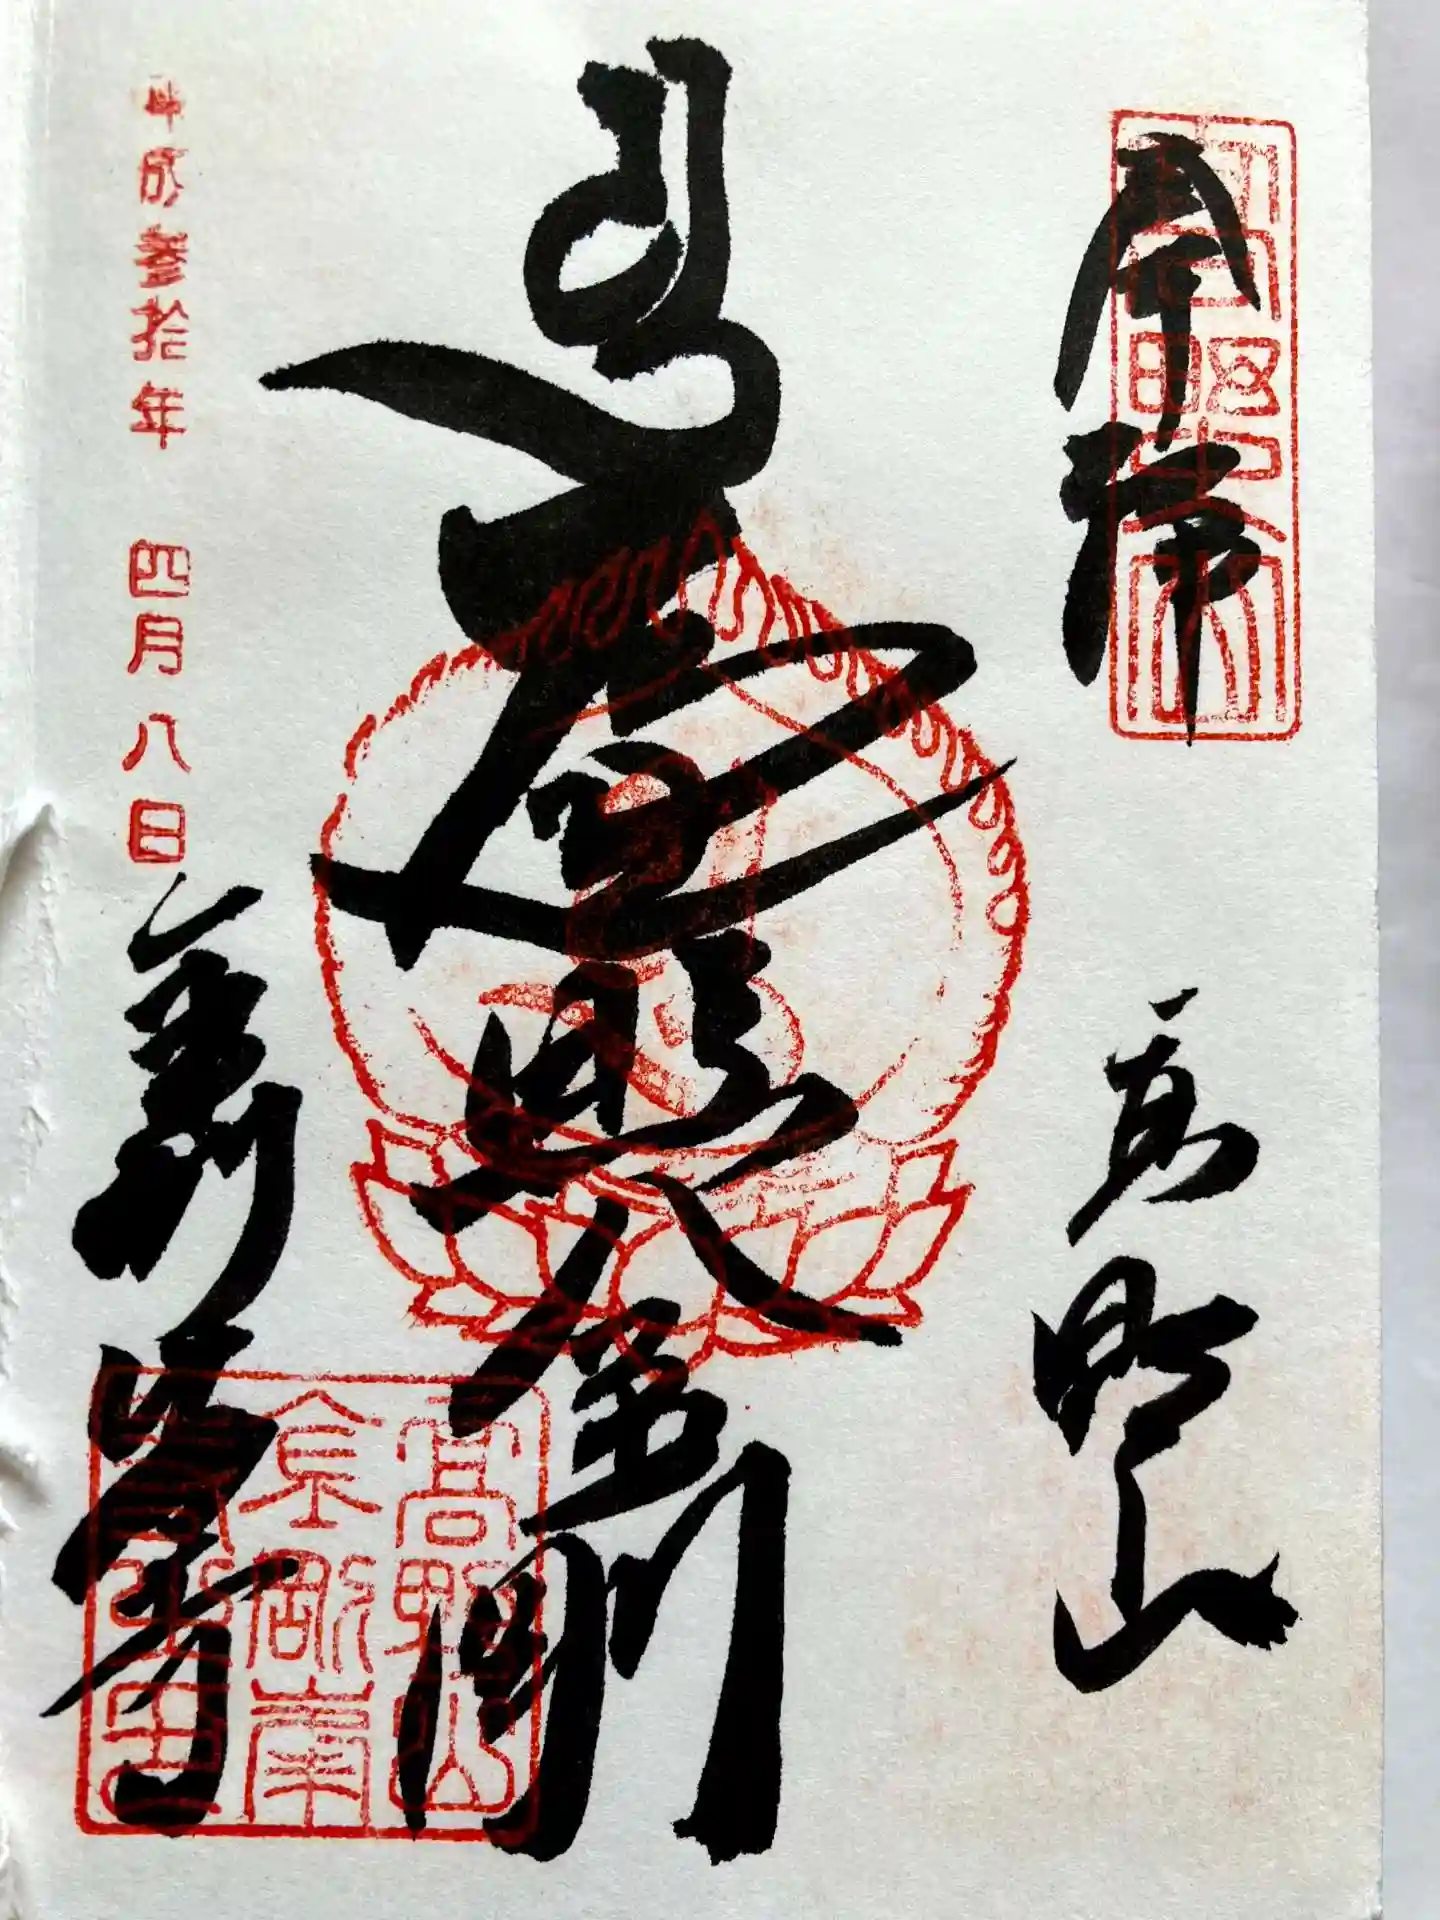 奉拝
高野山
遍照金剛
平成参拾年 四月八日
金剛峯寺
高野山
金剛峯